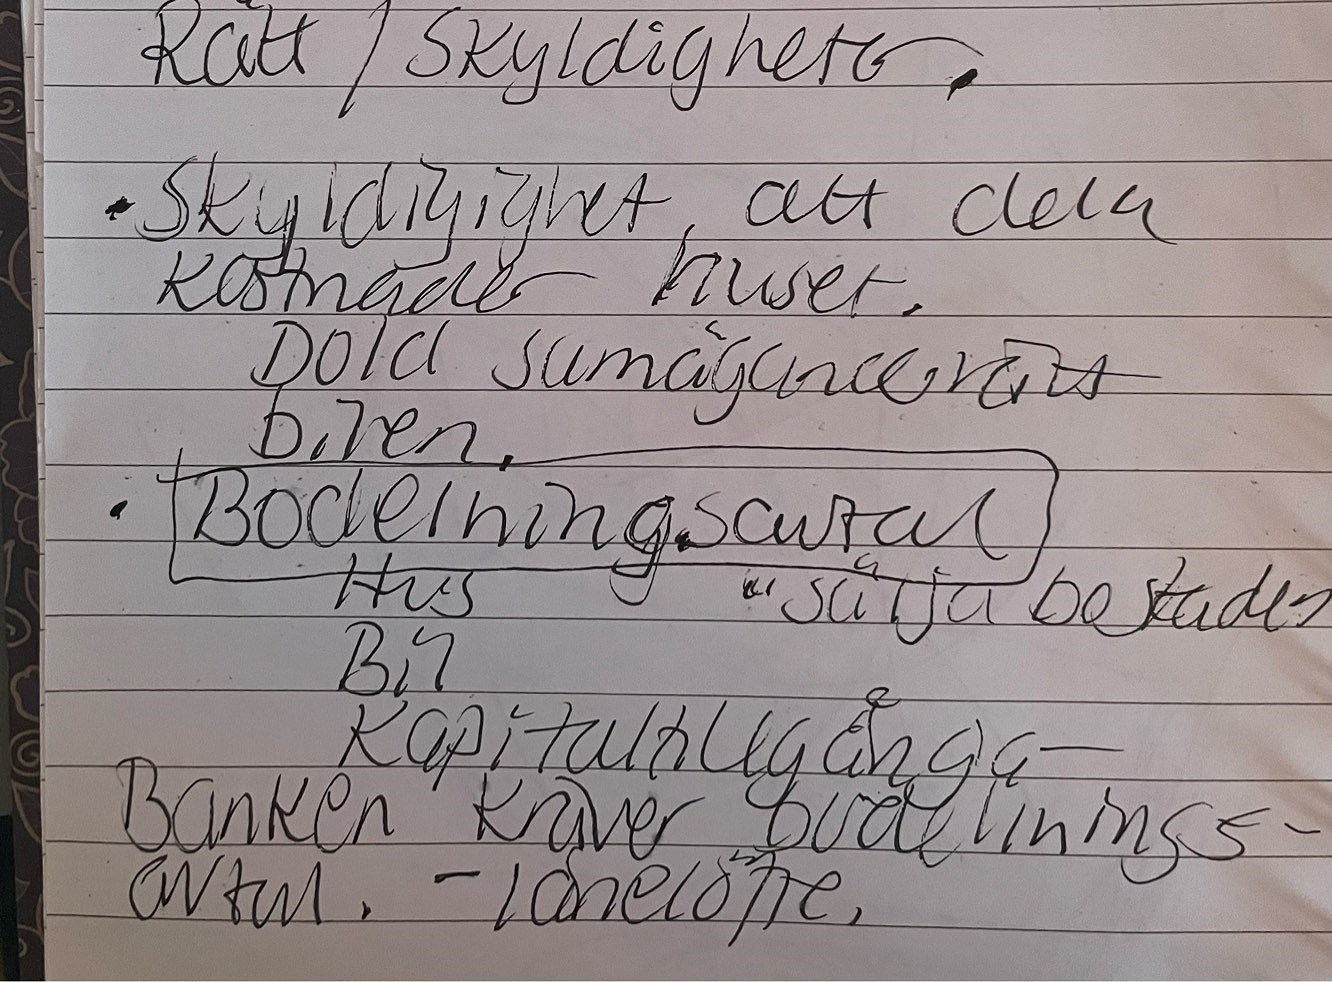 Rätt / Skyldigheter.
• Skyldigighet, att dela
kostnader huset.
Dold samäganderätt
bilen.
• Bodelningsavtal
Hus "sälja bostaden
Bil
Kapitaltillgånga
Banken kräver bodelnings-
avtal. - lånelöfte.